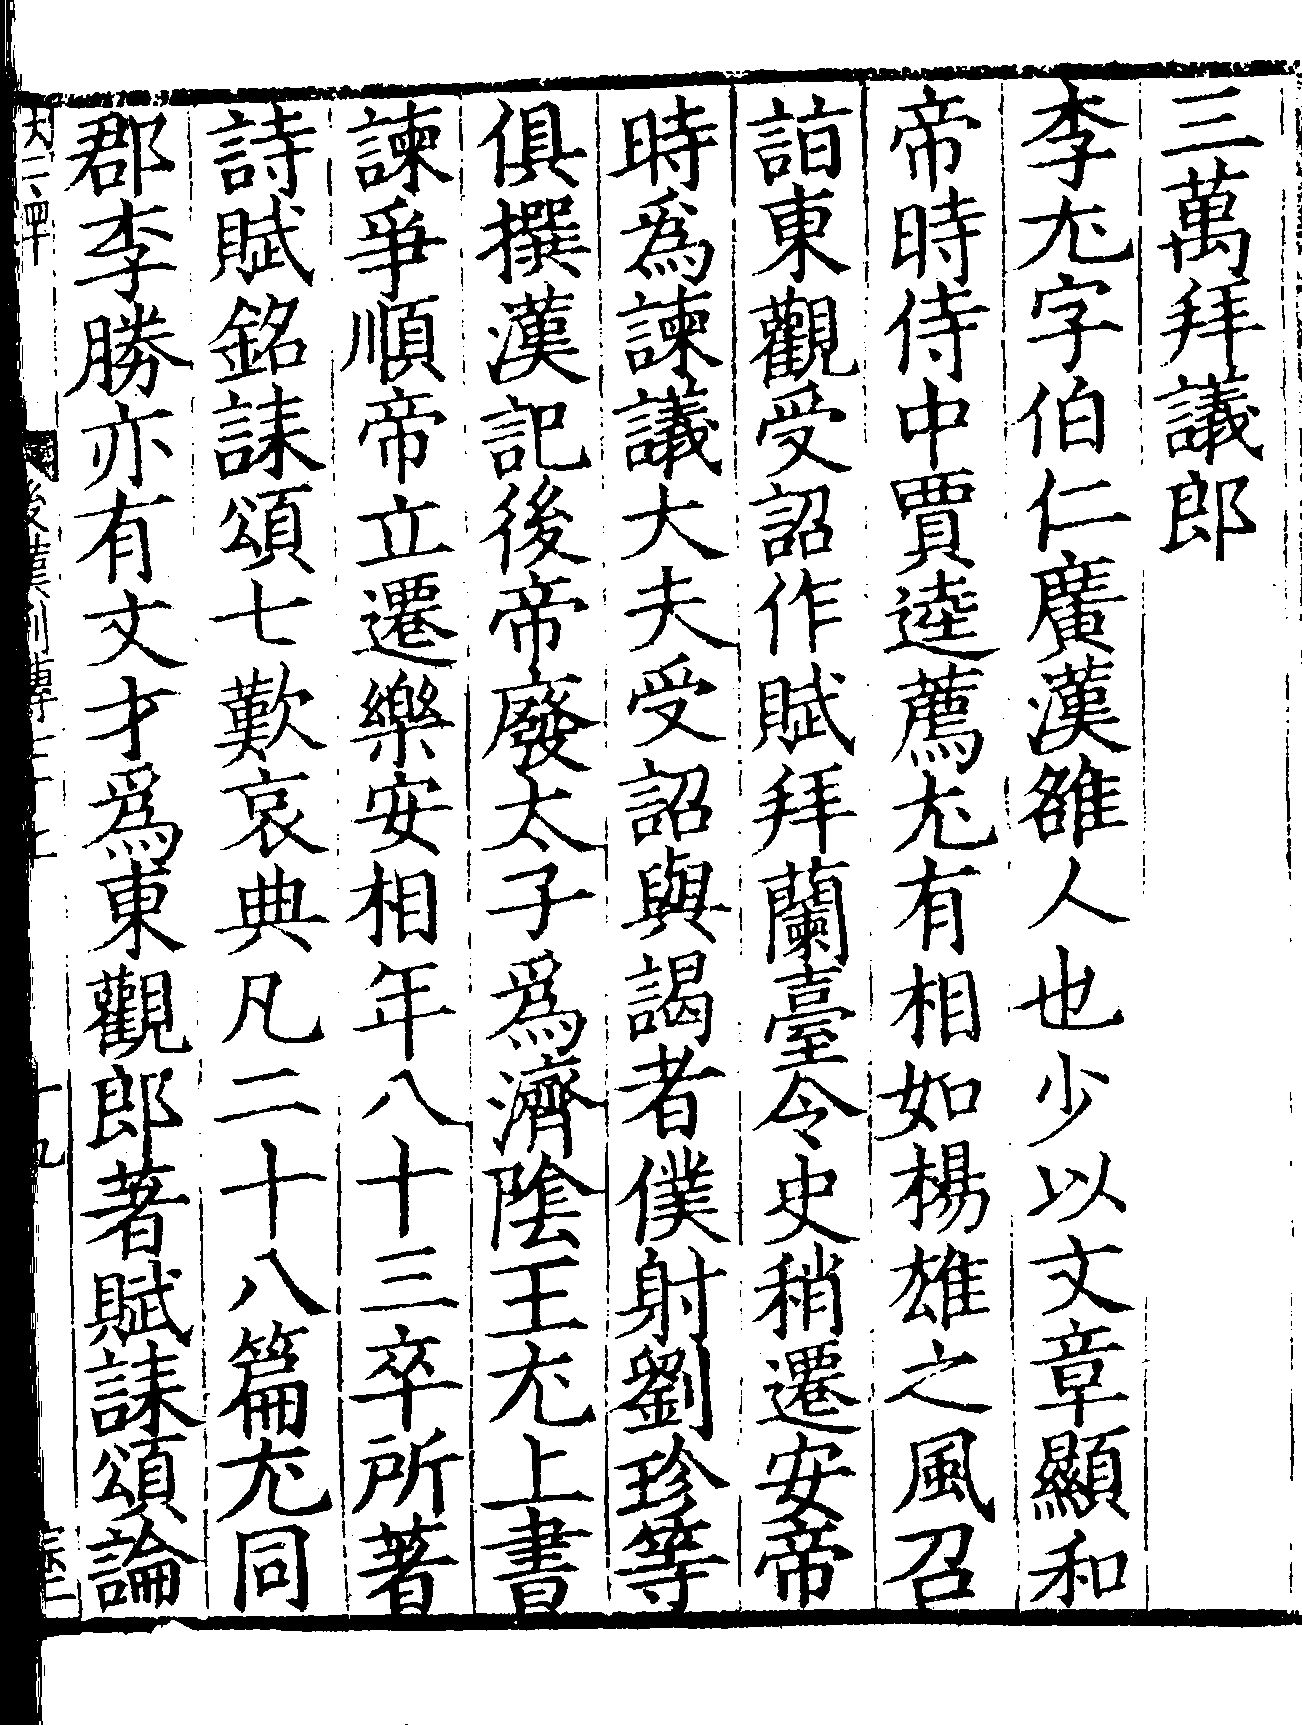 三萬拜議郎
李尤字伯仁廣漢雒人也少以文章顯和
帝時侍中賈逵薦尤有相如楊雄之風召
詣東觀受詔作賦拜蘭臺令史稍遷安帝
時爲諫議大夫受詔與謁者僕射劉珍等
俱撰漢記後帝廢太子爲濟陰王尤上書
諫爭順帝立遷樂安相年八十三卒所著
詩賦銘誄頌七歎哀典凡二十八篇尤同
郡李勝亦有文才爲東觀郎著賦誄頌論